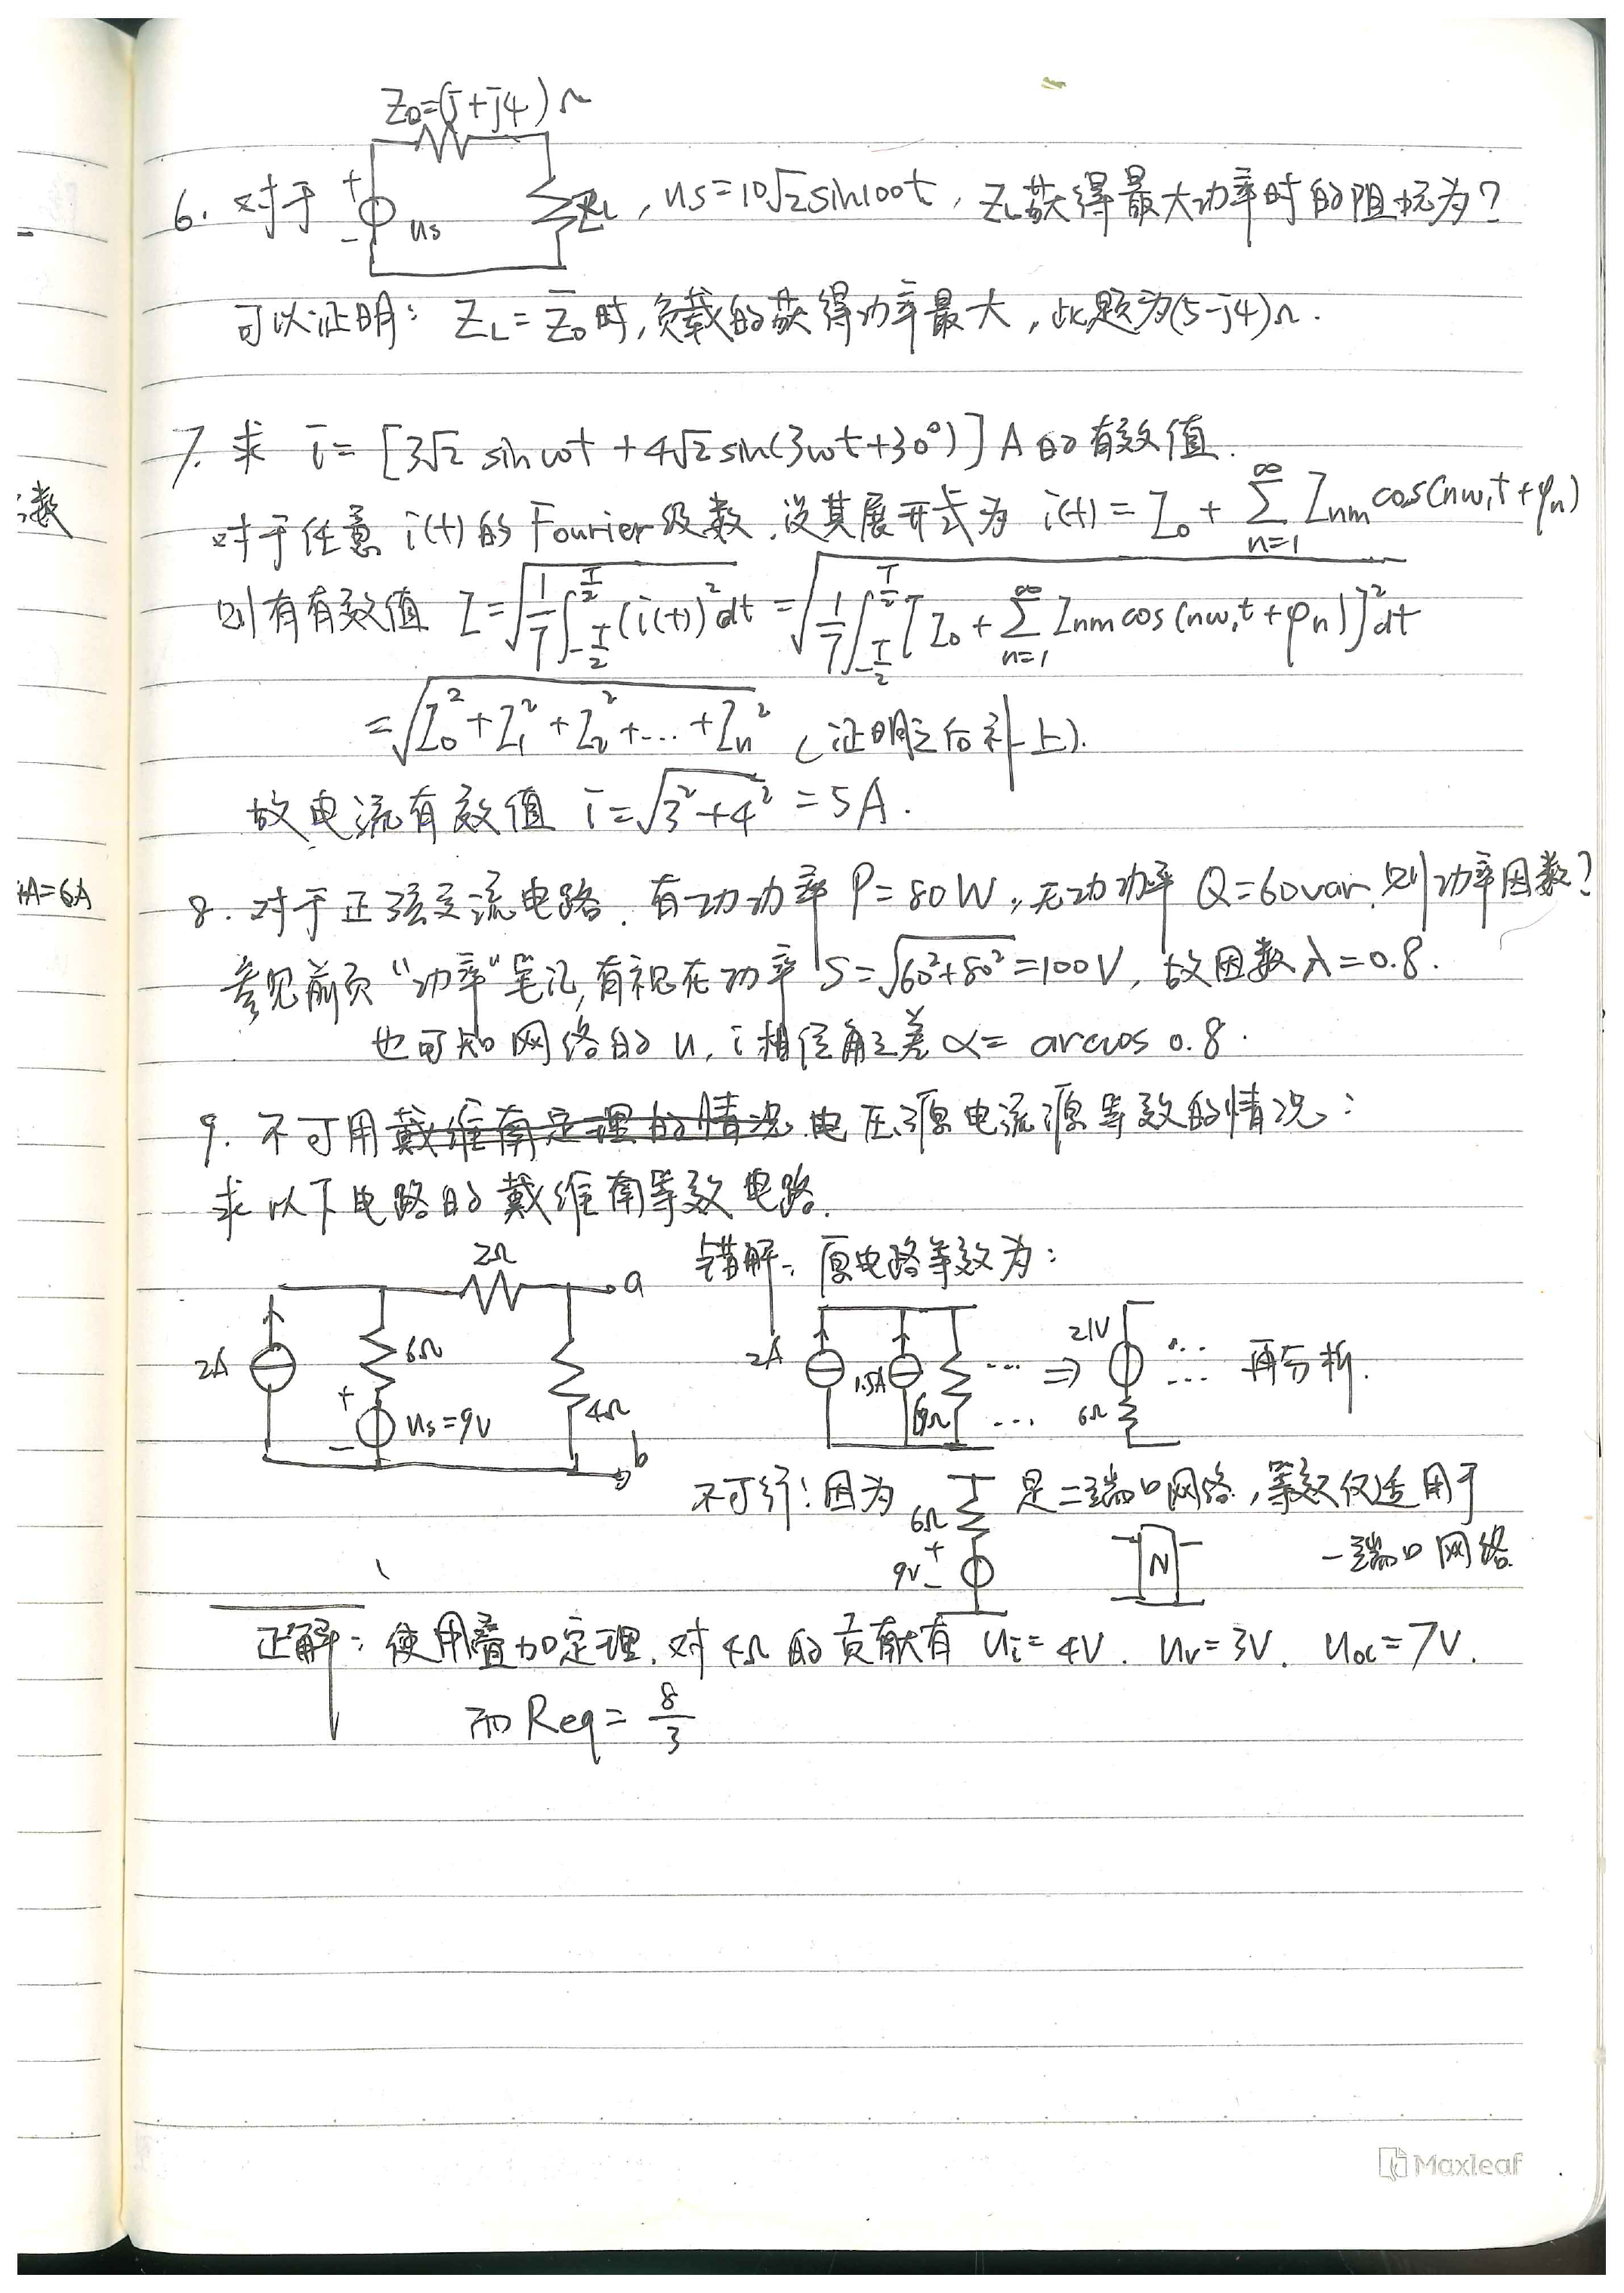 Z₀=(5+j4)Ω
6. 对于 + - us ZL , us=10√2sin100t , ZL获得最大功率时的阻抗为?
可以证明: ZL=Z̄₀时,负载的获得功率最大,此题为(5-j4)Ω.
7. 求 i=[3√2 sinωt+4√2sin(3ωt+30°)]A的有效值.
对于任意 i(t)的Fourier级数,设其展开式为 i(t)=I₀+∑_{n=1}^{∞} Inm cos(nω₁t+φn)
则有有效值 I=√(1/T ∫_{-T/2}^{T/2} (i(t))²dt) =√(1/T ∫_{-T/2}^{T/2} [I₀+∑_{n=1}^{∞} Inm cos(nω₁t+φn)]²dt)
=√(I₀²+I₁²+I₂²+...+In²) (证明之后补上).
故电流有效值 i=√(3²+4²)=5A.
数
8. 对于正弦交流电路.有功功率 P=80W,无功功率 Q=60var,则功率因数?
A=6A
参见前页"功率"笔记,有视在功率 S=√(60²+80²)=100V,故因数λ=0.8.
也可知网络的u,i相位角之差α=arccos 0.8.
9. 不可用戴维南定理的情况 电压源电流源等效的情况:
求以下电路的戴维南等效电路.
错解: 原电路等效为:
2Ω a
2A 6Ω + - us=9V 4Ω b
2A 1.5A 6Ω ... ... ⇒ 21V 6Ω ... ... 再分析.
不可行!因为 6Ω 9V + - 是二端口网络,等效仅适用于
N 一端口网络
正解: 使用叠加定理.对4Ω的贡献有 ui=4V. uv=3V. uoc=7V.
而Req=8/3
Maxleaf